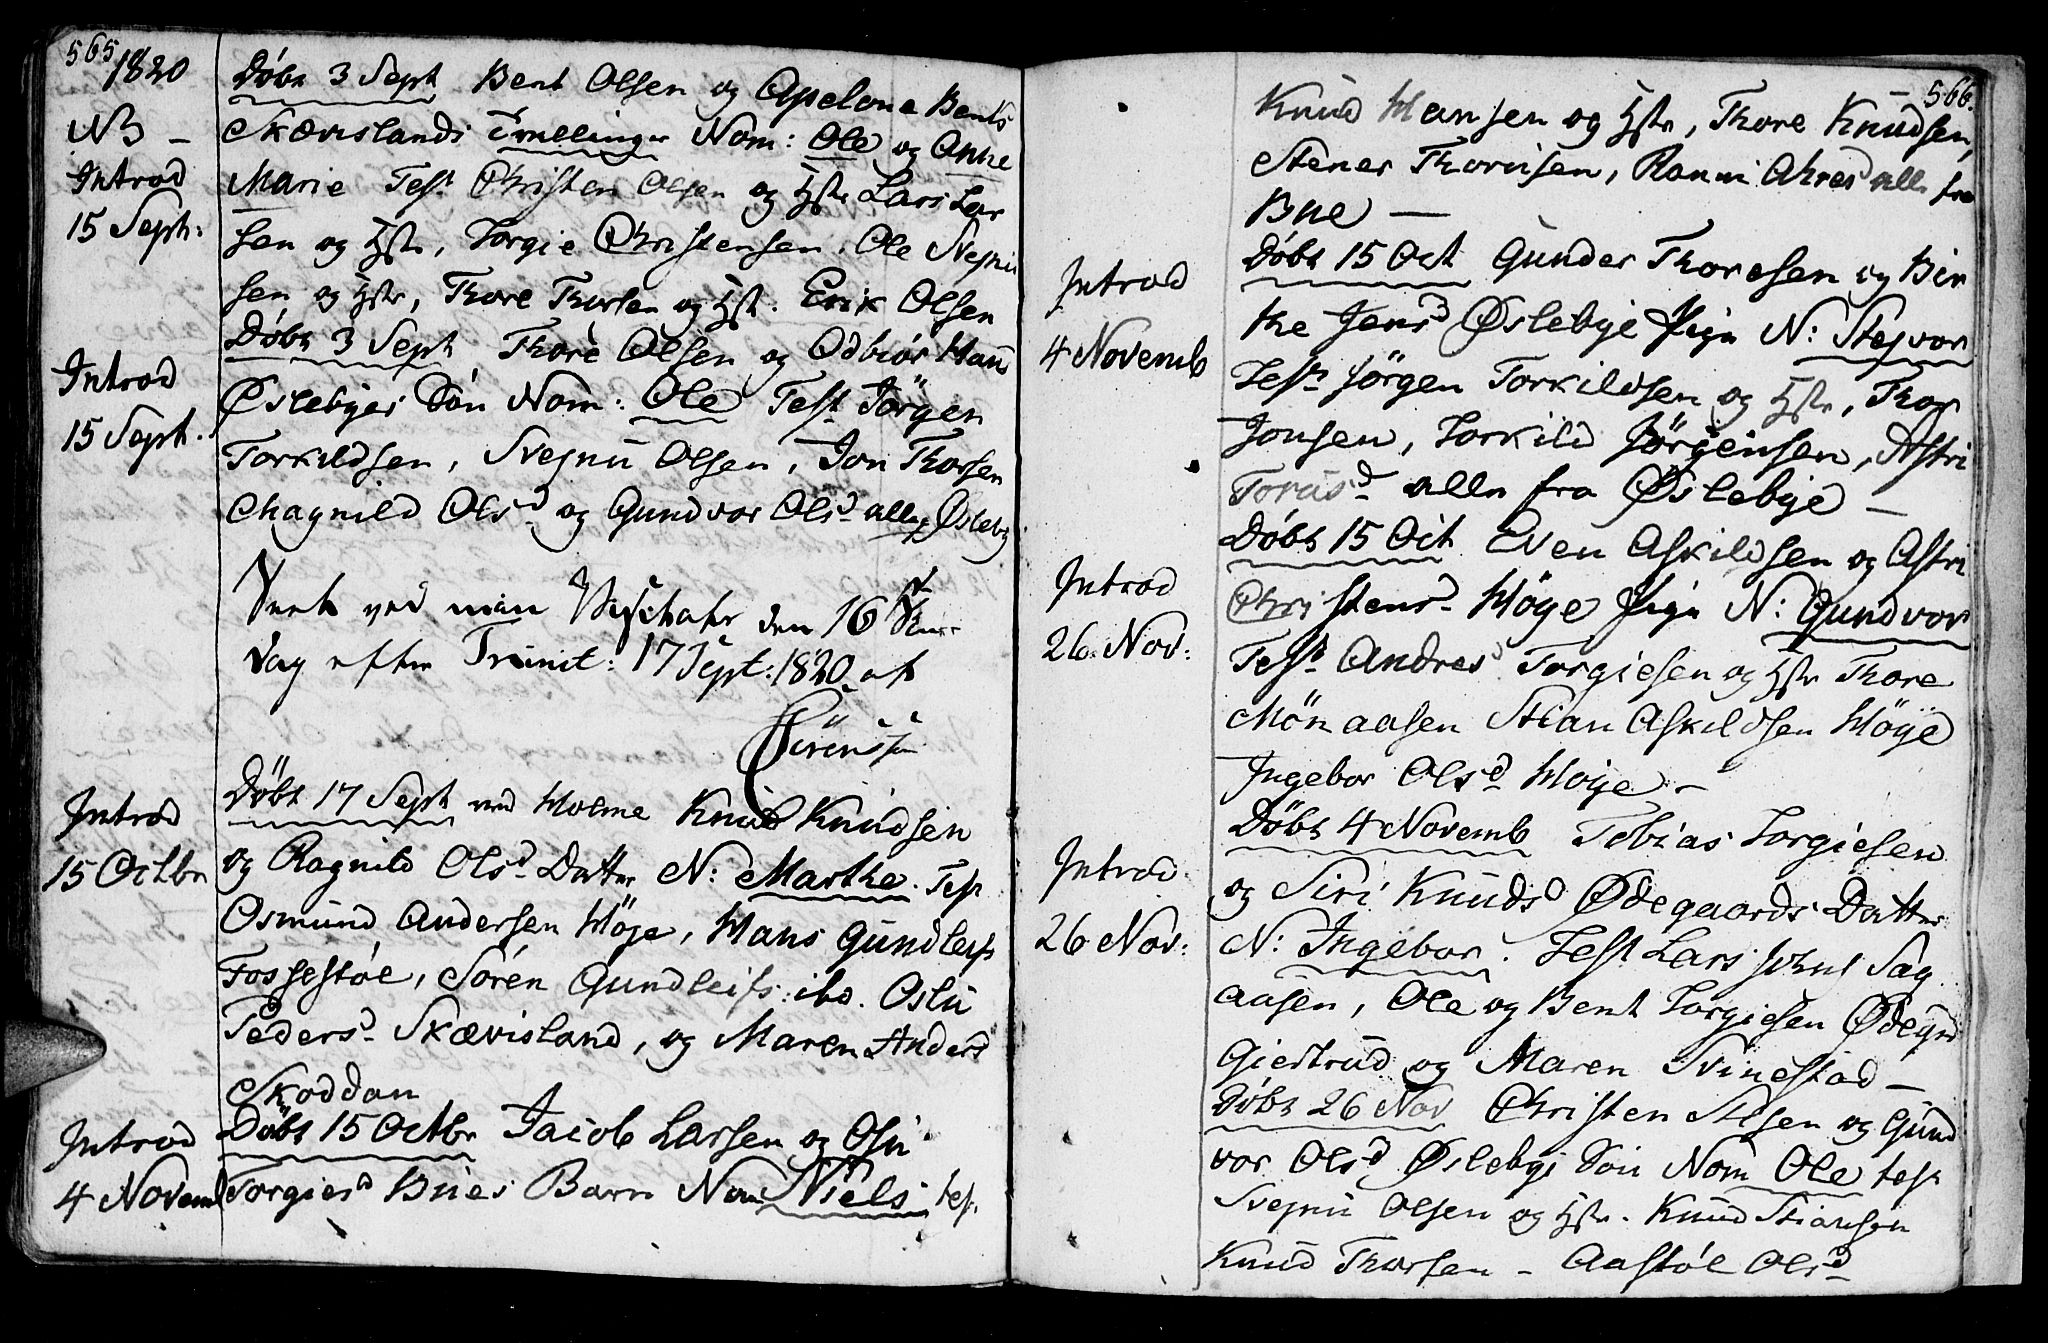 565
1820
NB –
Introd
15 Sept:
Introd
15 Sept.
Introd
15 Octbr
Introd
4 Novemb
Döbt 3 Sept Bent Olsen og Apelone Bents
Skævislands Tvillinger Nom: Ole og Anne
Marie Test Christen Olsen og Hstr Lars Lar
sen og Hstr, Torgie Christensen, Ole Svejnu
sen og Hstr, Thore Thorsen og Hst. Erik Olsen
Döbt 3 Sept Thore Olsen og Odbiör Hans
Øslebyes Sön Nom: Ole Test Jörgen
Torkildsen, Svejnu Olsen, Jon Thorsen
Chagnild Olsd og Gundvor Olsd alle Øsleby
den 16
Dag efter Trinit: 17 Sept: 1820 af
Sörensen
Döbt 17 Sept ved Holme Knud Knudsen
og Ragnild Olsd Datter N: Marthe. Test
Osmund Andersen Höje, Hans Gundleifs
Fossestöl, Sören Gundleifs: ibd. Oslu
Pedersd Skævisland, og Maren Andersd
Skoddan
Döbt 15 Octbr Jacob Larsen og Osu
Torgiesd Bues Barn Nom Niels, test.
566.
Introd
4 Novemb
Introd
26 Nov:
Introd
26 Nov:
Knud Hansen og Hstr, Thore Knudsen,
Stener Thorusen, Ranni Akresd alle fra
Bue –
Döbt 15 Oct Gunder Thoresen og Bir
the Jensd Øslebye Pige N: Stejvor
Test Jörgen Torkildsen og Hstr, Thor
Jonsen, Torkild Jörgensen, Astri
Torusd alle fra Øslebye –
Döbt 15 Oct Even Askildsen og Astri
Christensd Höye Pige N: Gundvor
Test Andres Torgiesen og Hstr Thore
Mönaasen Stian Askildsen Höye
Ingebor Olsd Höye –
Döbt 4 Novemb Tobias Torgiesen
og Siri Knudsd Ødegaards Datter
N: Ingebor. Test Lars Johns Sag
aasen, Ole og Bent Torgiesen Ødegrd
Giertrud og Maren Svinestad –
Döbt 26 Nov Christen Olsen og Gund
vor Olsd Øslebyi Sön Nom Ole test
Svejnu Olsen og Hstr. Knud Stiansen
Knud Thorsen – Aastöl Olsd